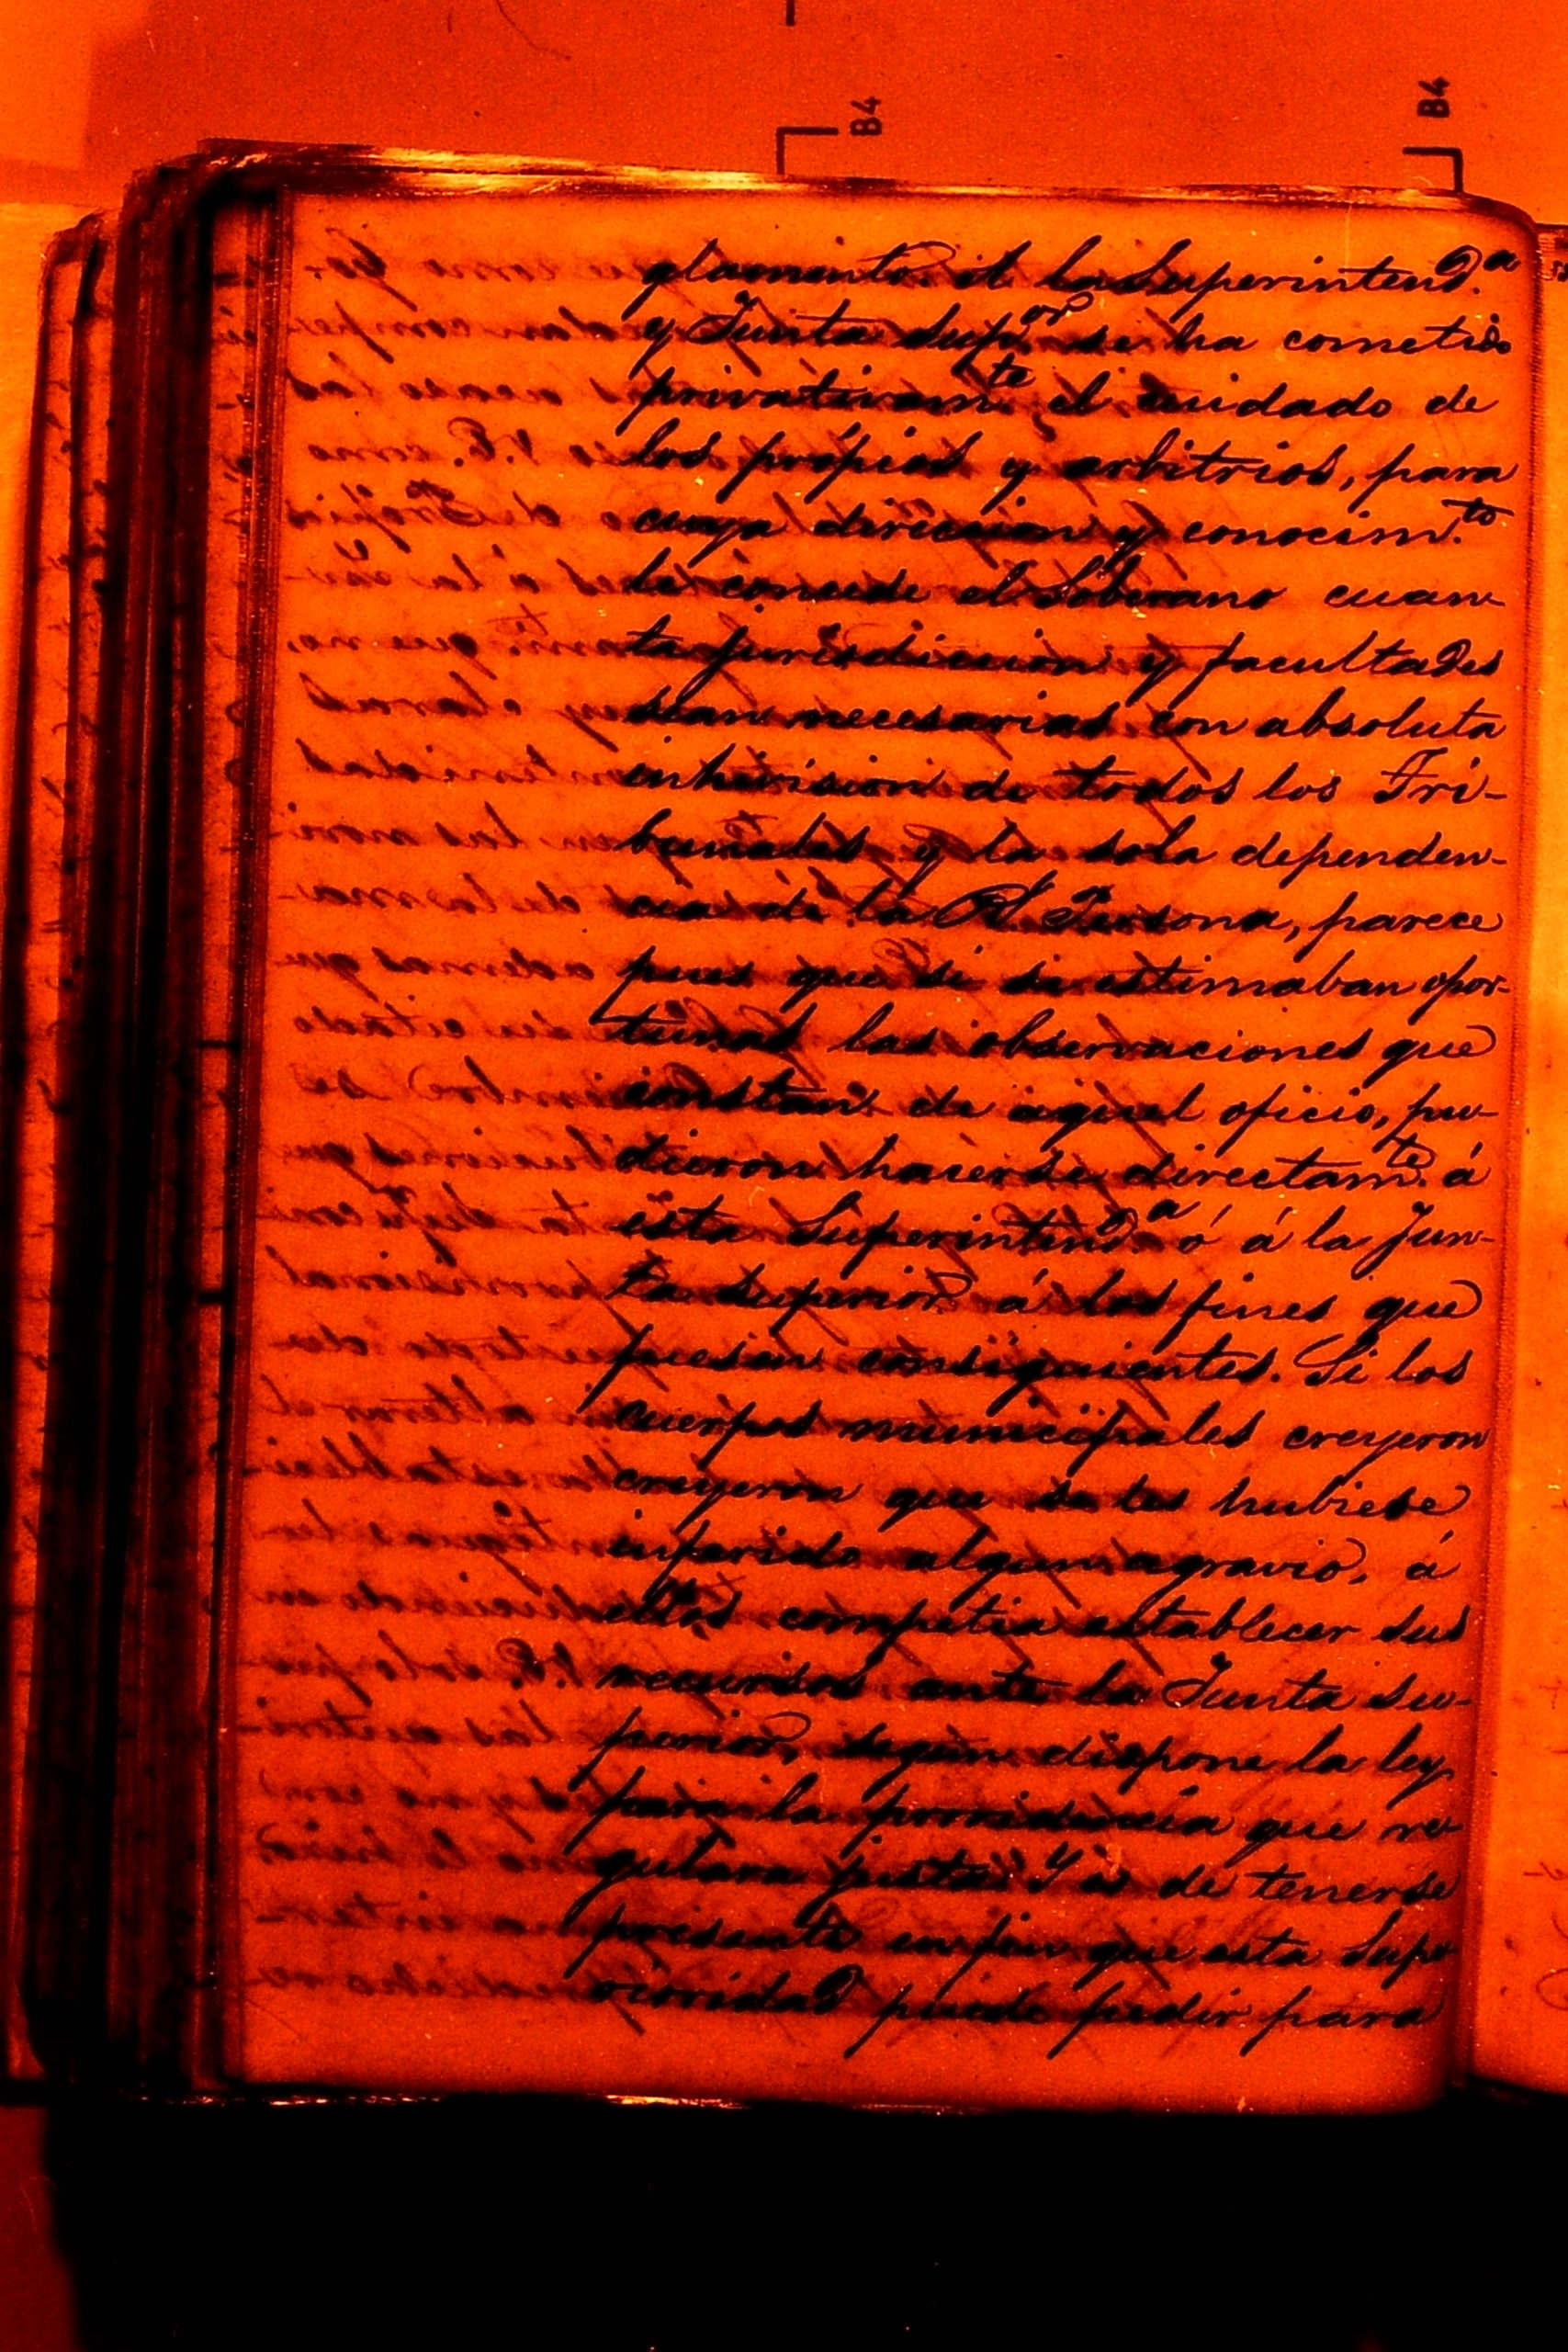 B4
B4
glamento. A la Superintend.ª
y Junta Sup.or se ha cometido
privativam.te el cuidado de
los própios y arbitrios, para
cuya direccion y conocim.to
le concede el Soberano cuan-
ta jurisdiccion y facultades
sean necesarias con absoluta
inhivision de todos los Tri-
bunales y la sola dependen-
cia de la Rl. Persona, parece
pues que si se estimaban opor-
tunas las observaciones que
constan de aquel oficio, pu-
dieron hacerse directam.te á
esta Superintend.ª ó á la Jun-
ta Superior á los fines que
fuesen consiguientes. Si los
cuerpos municipales creyeron
creyeron que se les hubiese
inferido algun agravio, á
ellos competia establecer sus
recursos ante la Junta su-
perior, segun dispone la ley
para la providencia que re-
gulara justa. Y es de tenerse
presente en fin que esta Supe-
rioridad puede pedir para